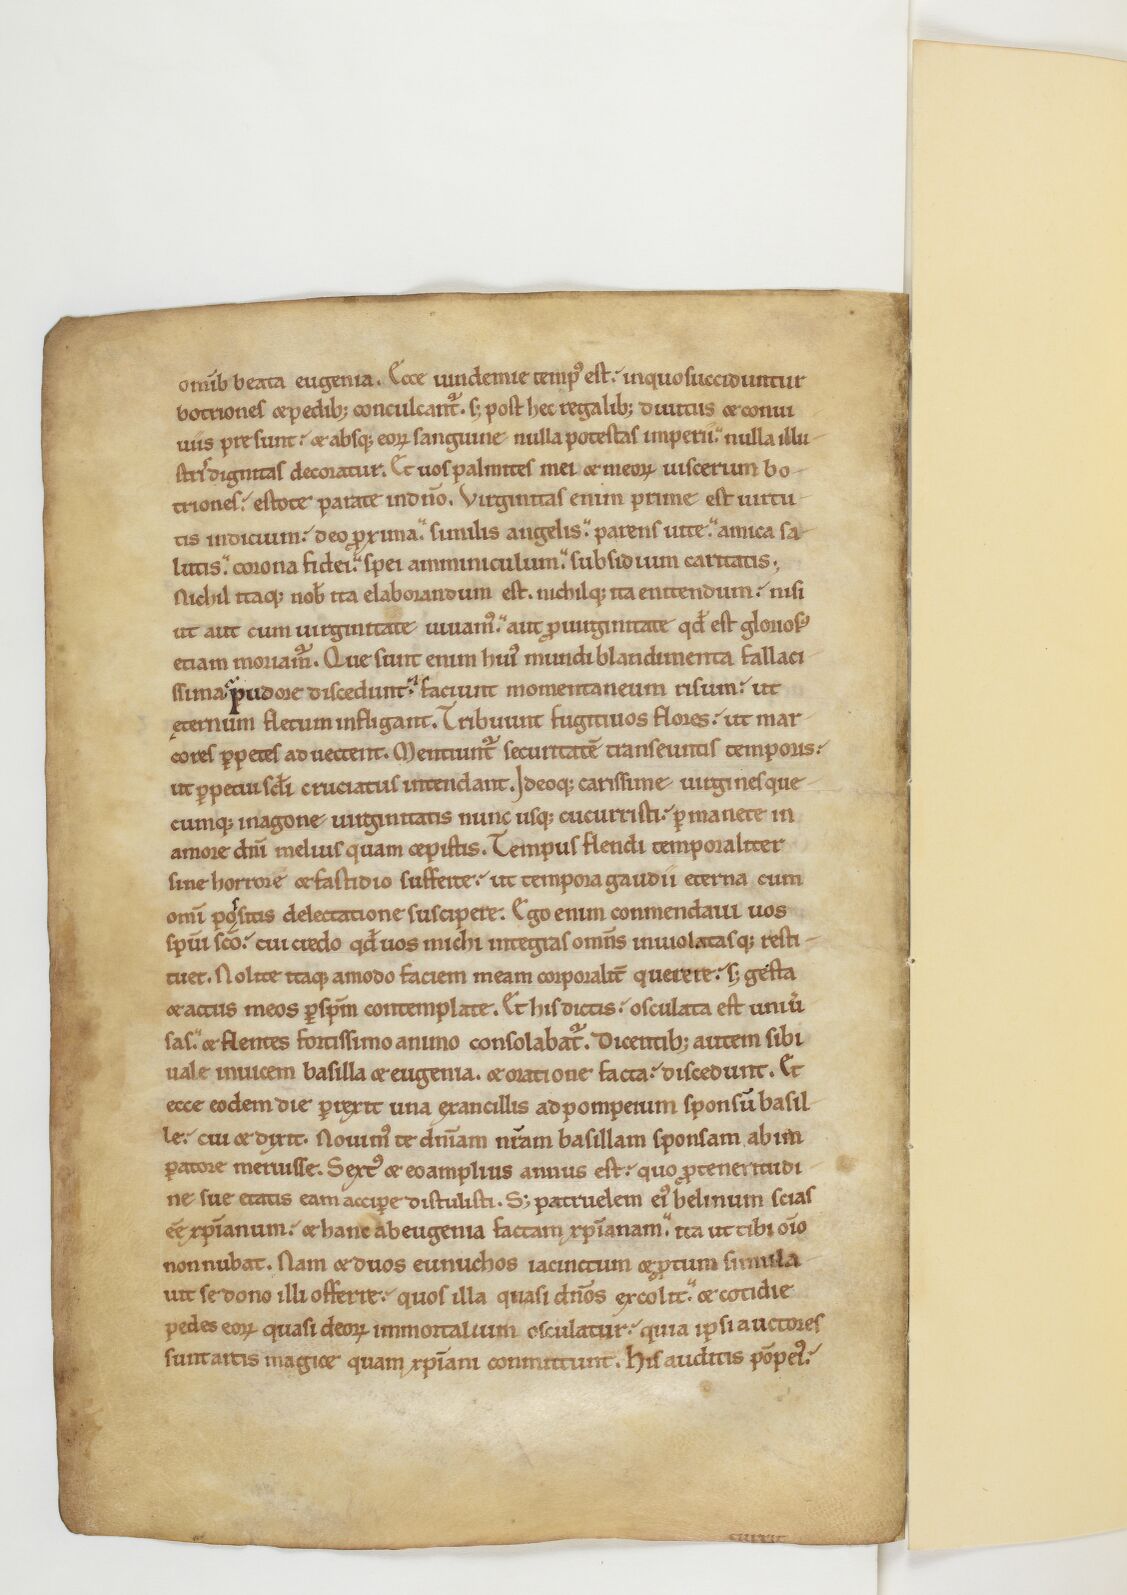 omib beata eugenia. Ecce uindemie temp᾿ est. inquo succiduntur
botriones & pedib; conculcant᷑. s; post hec regalib; diuitiis & conui
uiis presunt. & absq; eoꝝ sanguine nulla potestas imperii. nulla illu
stris dignitas decoratur. Et uos palmites mei & meoꝝ uiscerum bo-
triones. estote parate in dn̄o. Virginitas enim prime est uirtu
tis indicium. deo ꝓxima. similis angelis. parens uite. amica sa
lutis. corona fidei. spei amminiculum. subsidium caritatis;
Nichil itaq; nob̄ ita elaborandum est. nichilq; ita enitendum. nisi
ut aut cum uirginitate uiuam᾿. aut ꝓ uirginitate qd̄ est glorios᾿
etiam moriam᷑. Que sunt enim hui᾿ mundi blandimenta fallaci
ssima pudore discedunt. faciunt momentaneum risum. ut
ęternum fletum infligant. Tribuunt fugitiuos flores. ut mar
cores ꝑpetes aduectent. Mentiunt᷑ securitatē transeuntis temporis.
ut ꝑpetui scl̄i cruciatus intendant. Ideoq; carissime uirgines que
cumq; in agone uirginitatis nunc usq; cucurristi. ꝑmanete in
amore dn̄i melius quam cepistis. Tempus flendi temporaliter
sine horrore & fastidio sufferte. ut tempora gaudii eterna cum
omī poſitis delectatione suscipere. Ego enim conmendaui uos
spūi sc̄o. cui credo qd̄ uos michi integras omīs inuiolatasq; resti-
tuet. Nolite itaq; amodo faciem meam corporalit̄ querere. s; gesta
& actus meos ꝑ spm̄ contemplate. Et his dictis. osculata est uniu̾
sas. & flentes fortissimo animo consolabat᷑. Dicentib; autem sibi
uale inuicem basilla & eugenia. & oratione facta. discedunt. Et
ecce eodem die ꝑrexit una ex ancillis ad pompeium sponsū basil
le. cui & dixit. Nouim᾿ te dn̄am nr̄am basillam sponsam ab im
ꝑatore meruisse. Sext᾿ & eo amplius annus est. quo ꝓ teneritudi
ne sue etatis eam accipe distulisti. S; patruelem ei᾿ helinum scias
eē xp̄ianum. & hanc ab eugenia factam xp̄ianam. ita ut tibi oīo
non nubat. Nam & duos eunuchos iacinctum & ꝓtum simula
uit se dono illi offerre. quos illa quasi dn̄os excolit. & cotidie
pedes eoꝝ quasi deoꝝ immortalium osculatur. quia ipsi auctores
sunt artis magice quam xp̄iani conmittunt. His auditis pōpei᾿.